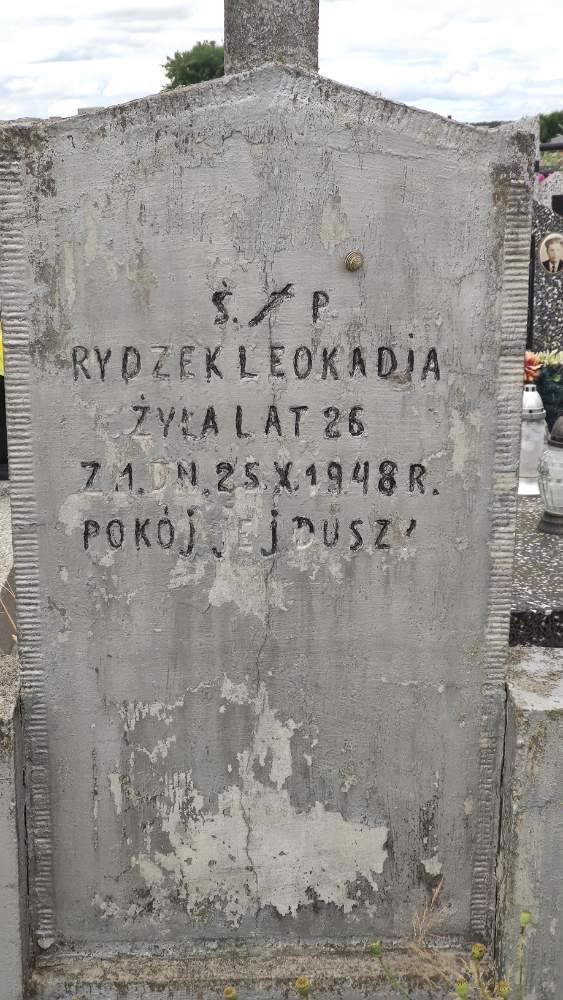 Ś. / P
RYDZEK LEOKADIA
ŻYŁA LAT 26
ZM. DN. 25.X.1948 R.
POKÓJ JEJ DUSZY